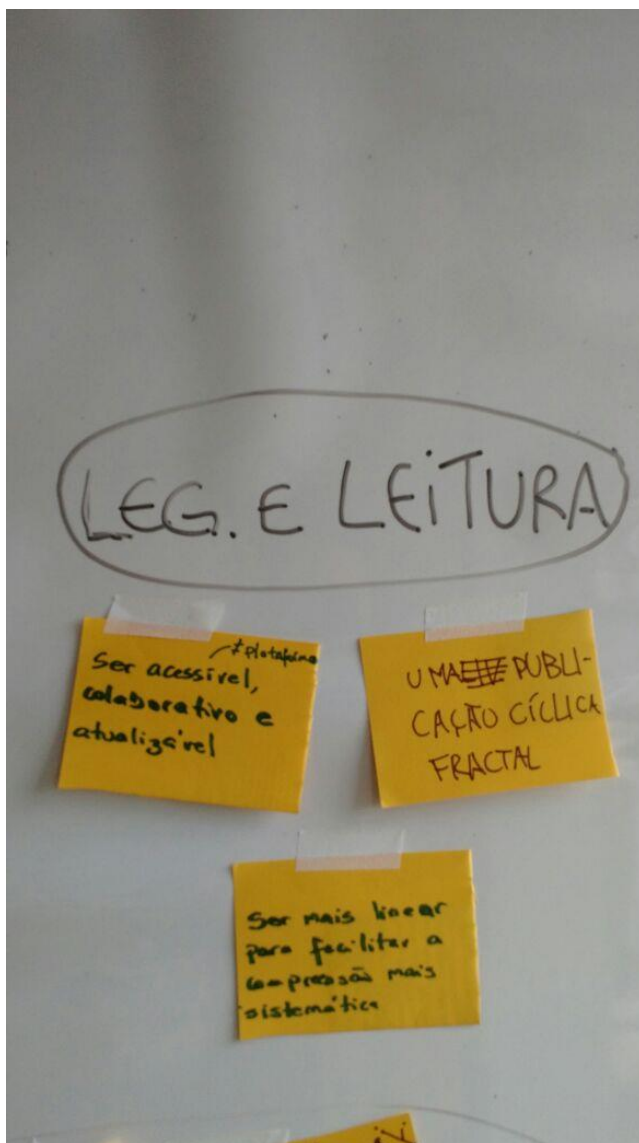 LEG. E LEITURA
≠ plataforma
Ser acessível,
colaborativo e
atualizável
UMA PUBLI-
CAÇÃO CÍCLICA
FRACTAL
Ser mais linear
para facilitar a
compreensão mais
sistemática